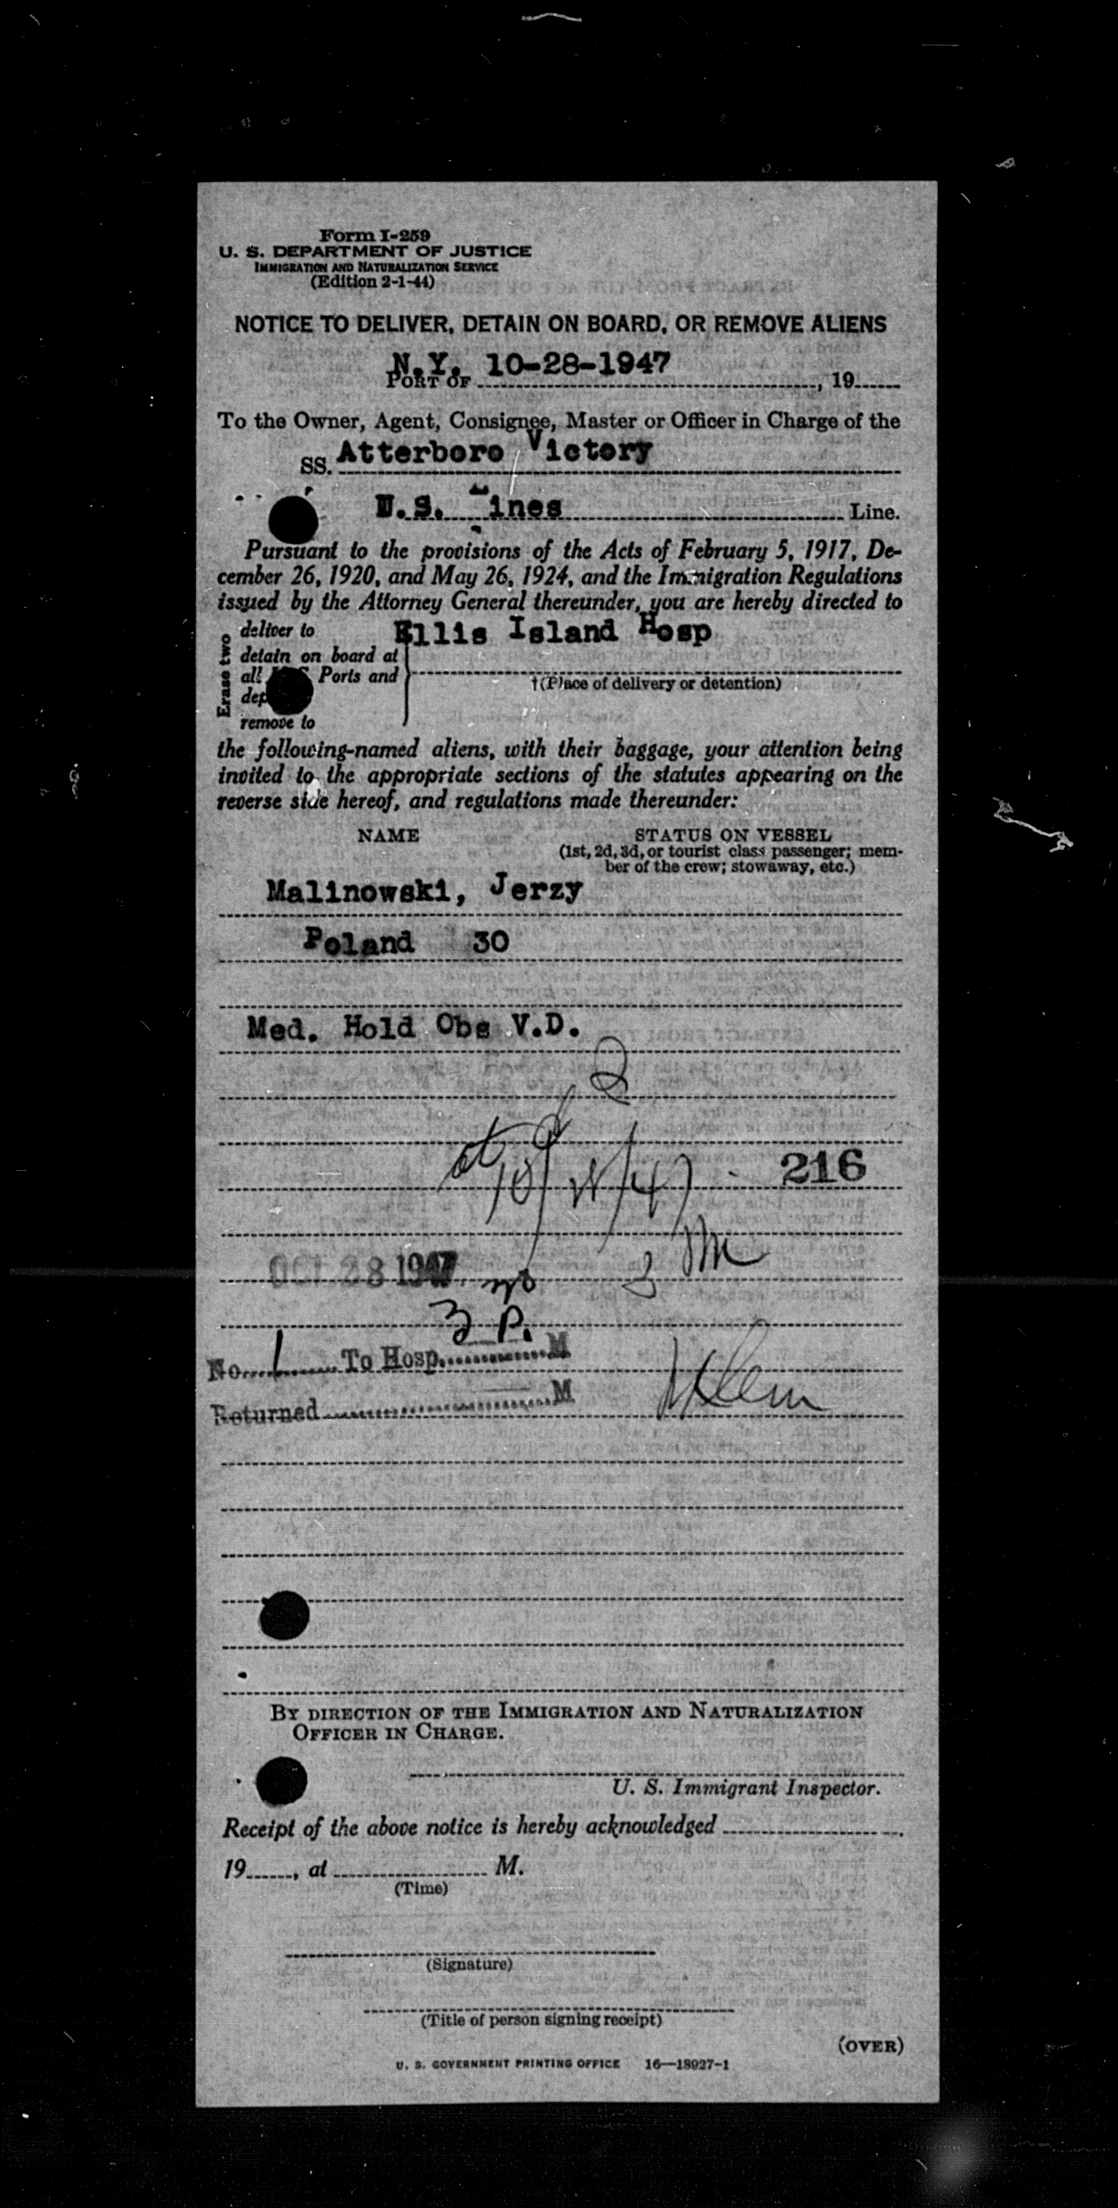 Form I-259
U. S. DEPARTMENT OF JUSTICE
IMMIGRATION AND NATURALIZATION SERVICE
(Edition 2-1-44)
NOTICE TO DELIVER, DETAIN ON BOARD, OR REMOVE ALIENS
N.Y. 10-28-1947
PORT OF ........, 19......
To the Owner, Agent, Consignee, Master or Officer in Charge of the
SS. Atterboro Victory
U.S. Lines Line.
Pursuant to the provisions of the Acts of February 5, 1917, De-
cember 26, 1920, and May 26, 1924, and the Immigration Regulations
issued by the Attorney General thereunder, you are hereby directed to
Erase two
deliver to
detain on board at
all Ports and
remove to
Ellis Island Hosp
†(Place of delivery or detention)
the following-named aliens, with their baggage, your attention being
invited to the appropriate sections of the statutes appearing on the
reverse side hereof, and regulations made thereunder:
NAME STATUS ON VESSEL
(1st, 2d, 3d, or tourist class passenger; mem-
ber of the crew; stowaway, etc.)
Malinowski, Jerzy
Poland 30
Med. Hold Obs V.D.
2
216
OCT 28 1947
3 P.
No. 1 To Hosp. M
Returned M
BY DIRECTION OF THE IMMIGRATION AND NATURALIZATION
OFFICER IN CHARGE.
U. S. Immigrant Inspector.
Receipt of the above notice is hereby acknowledged ........,
19......, at ........ M.
(Time)
(Signature)
(Title of person signing receipt)
(OVER)
U. S. GOVERNMENT PRINTING OFFICE 16—18927-1